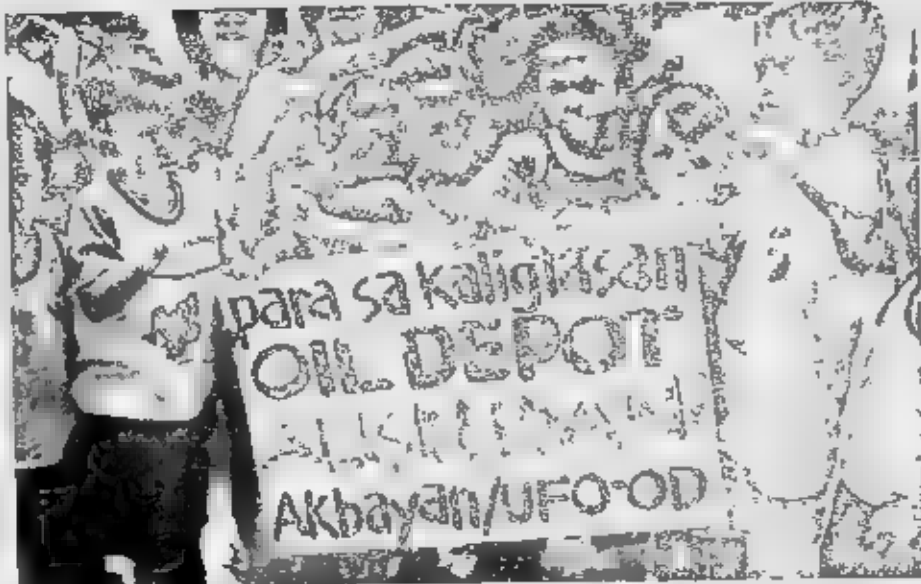 para sa kaligtasan
OIL DEPOT
Akbayan/UFO-OD